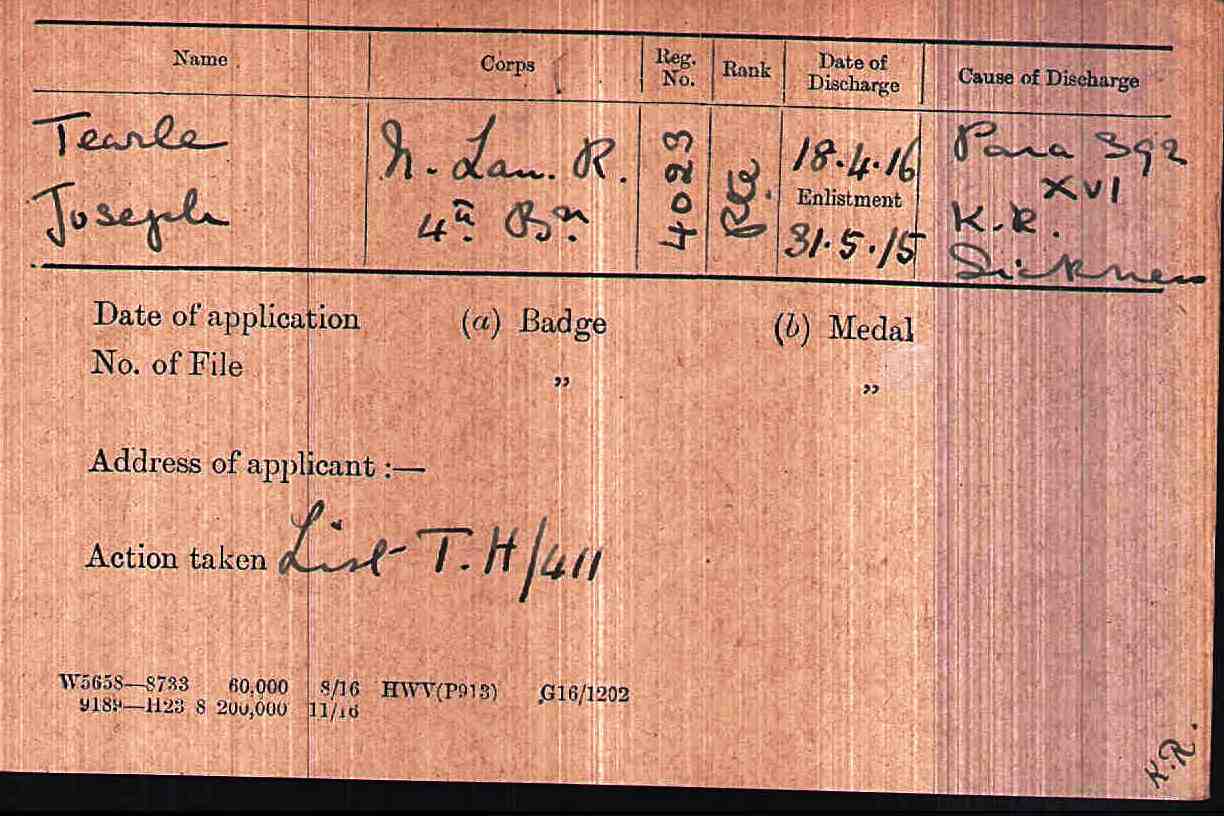 Name Corps Reg. No. Rank Date of Discharge Cause of Discharge
Tearle
Joseph
N. Lan. R.
4th Bn.
4023
Pte.
18.4.16
Enlistment
31.5.15
Para 392
XVI
K.R.
Sickness
Date of application (a) Badge (b) Medal
No. of File „ „
Address of applicant :—
Action taken List T.H/411
W5658—8733 60,000 8/16 HWV(P913) G16/1202
9189—H23 8 200,000 11/16
K.R.